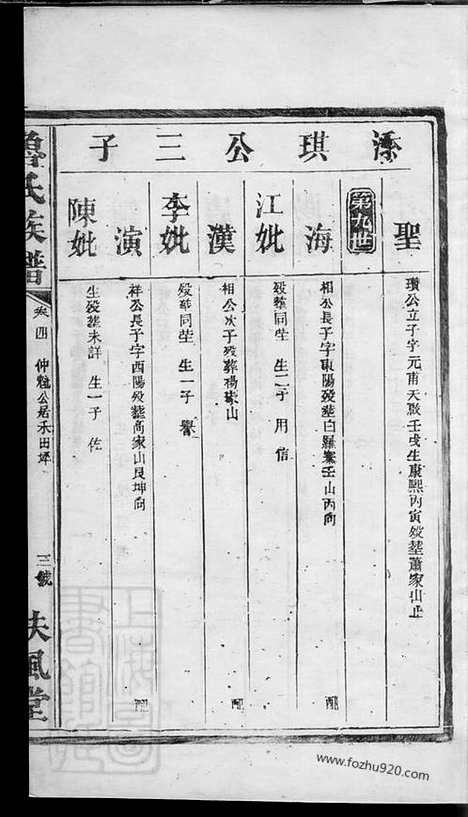 添琪公三子
聖
瓚公立子字元甫天啟壬戌生康熙丙寅歿塟蕭家山上
第九世
海
相公長子字東陽歿塟白羅寨壬山丙向
配
江妣
歿塟同塋 生二子 用 信
漢
相公次子歿葬楊家山
配
李妣
歿塟同塋 生一子 譽
演
祥公長子字西陽歿塟高家山艮坤向
配
陳妣
生歿塟未詳 生一子 佐
魯氏族譜
卷四 仲魁公居禾田坪
三號
扶風堂
www.fozhu920.com